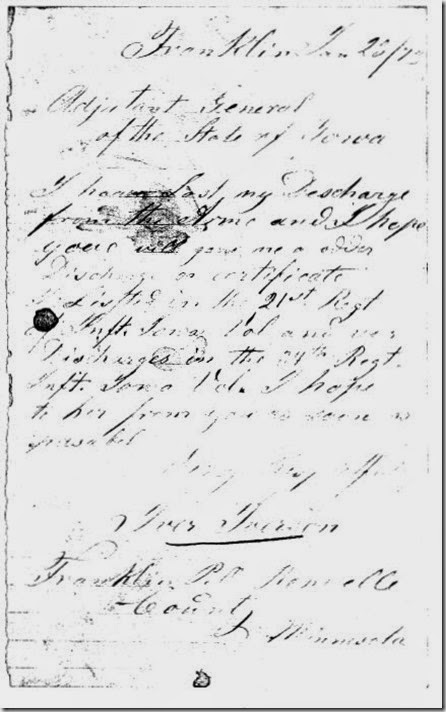 Franklin Jan 23/73
Adjutant General
of the State of Iowa
I haave Lost my Descharge
from the Arme and I hope
youe will gave me a odder
Discharge or certificate
I Listted in the 21st Regt
of Inft. Iowa Vol and wer
Discharges in the 34th Regt.
Inft. Iowa Vol. I hope
to her from you so soon as
posabel
Very
Iver Iverson
Franklin P.O. Renville
County
Minnesota